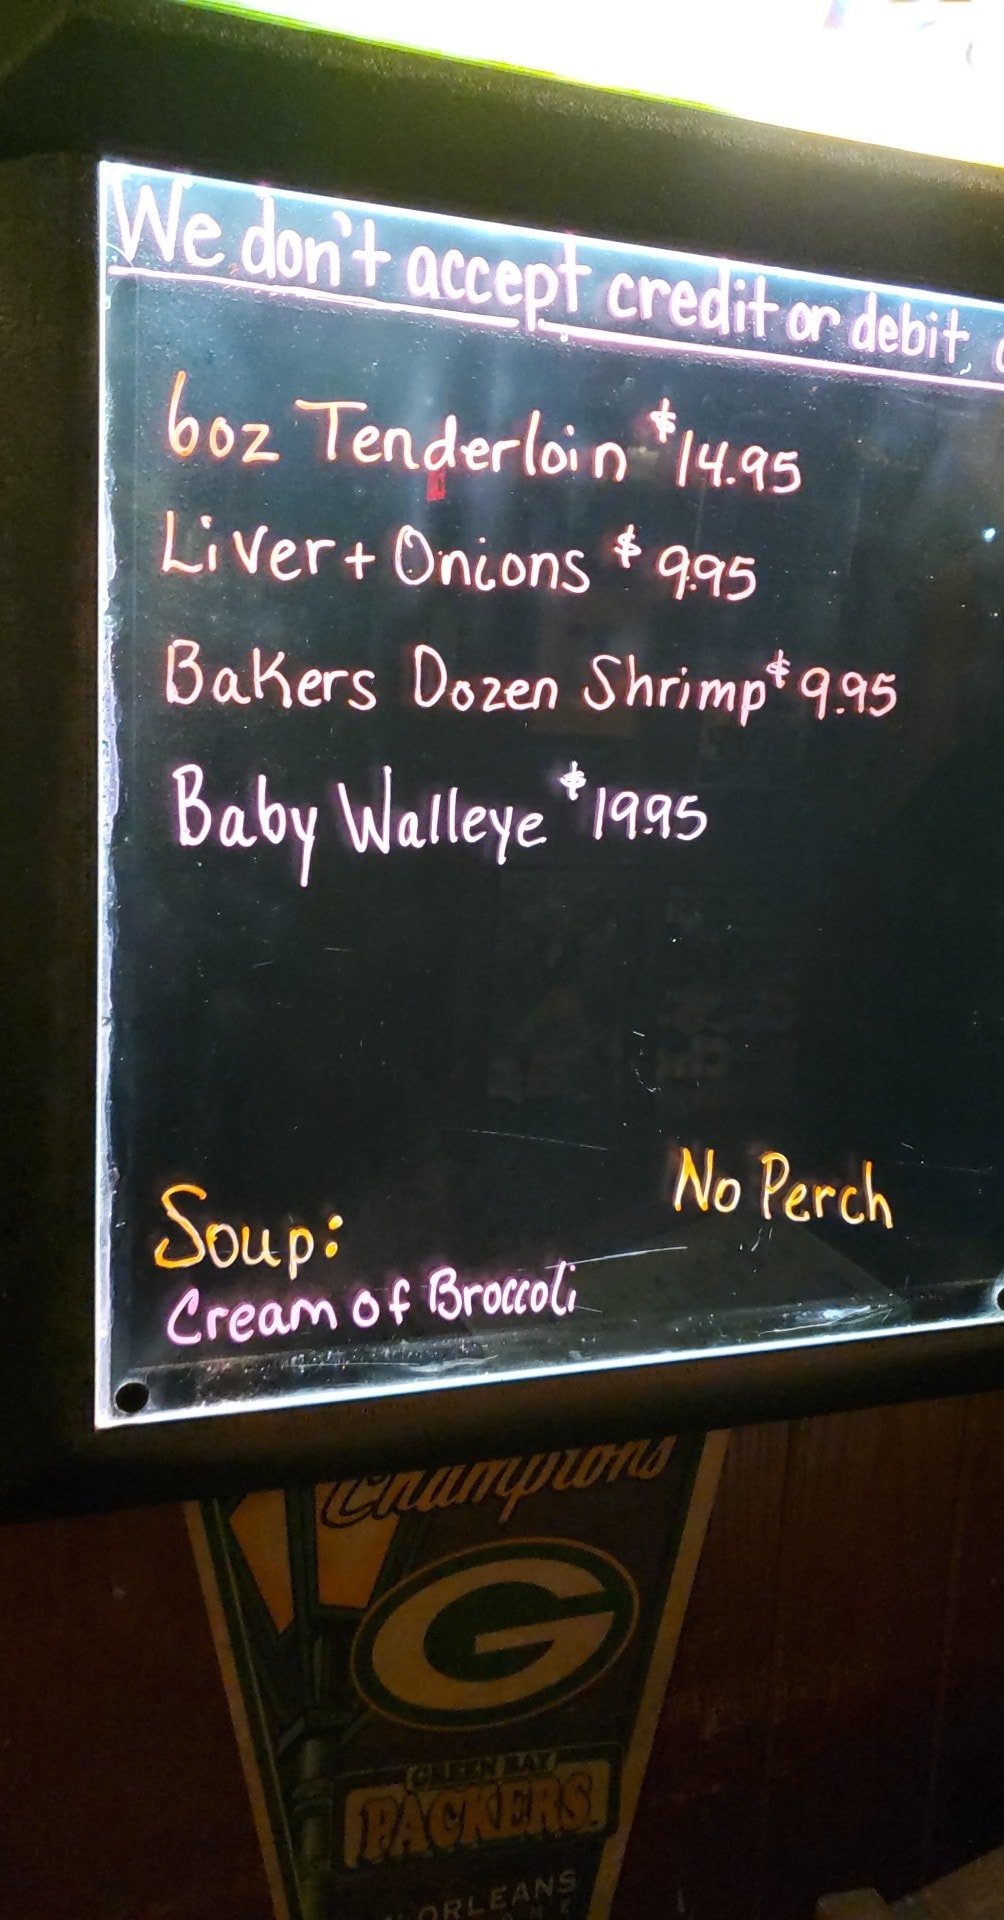 We don't accept credit or debit,
6oz Tenderloin $14.95
Liver + Onions $9.95
Bakers Dozen Shrimp $9.95
Baby Walleye $19.95
No Perch
Soup:
Cream of Broccoli
Champions
G
GREEN BAY
PACKERS
ORLEANS